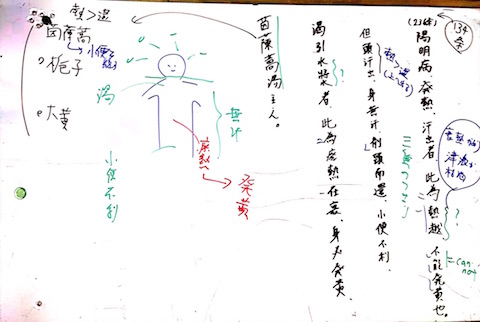 134
条
(236条)
陽明病、発熱、汗出者、此為熱越、不能発黄也。
= can
not
但頭汗出、身無汗、剤頸而還、小便不利、
熱>湿
渇引水漿者、此為瘀熱在裏、身必発黄、
茵蔯蒿湯主之。
無汗
瘀熱
発黄
熱>湿
茵蔯蒿
小便
梔子
大黄
渇
小便不利